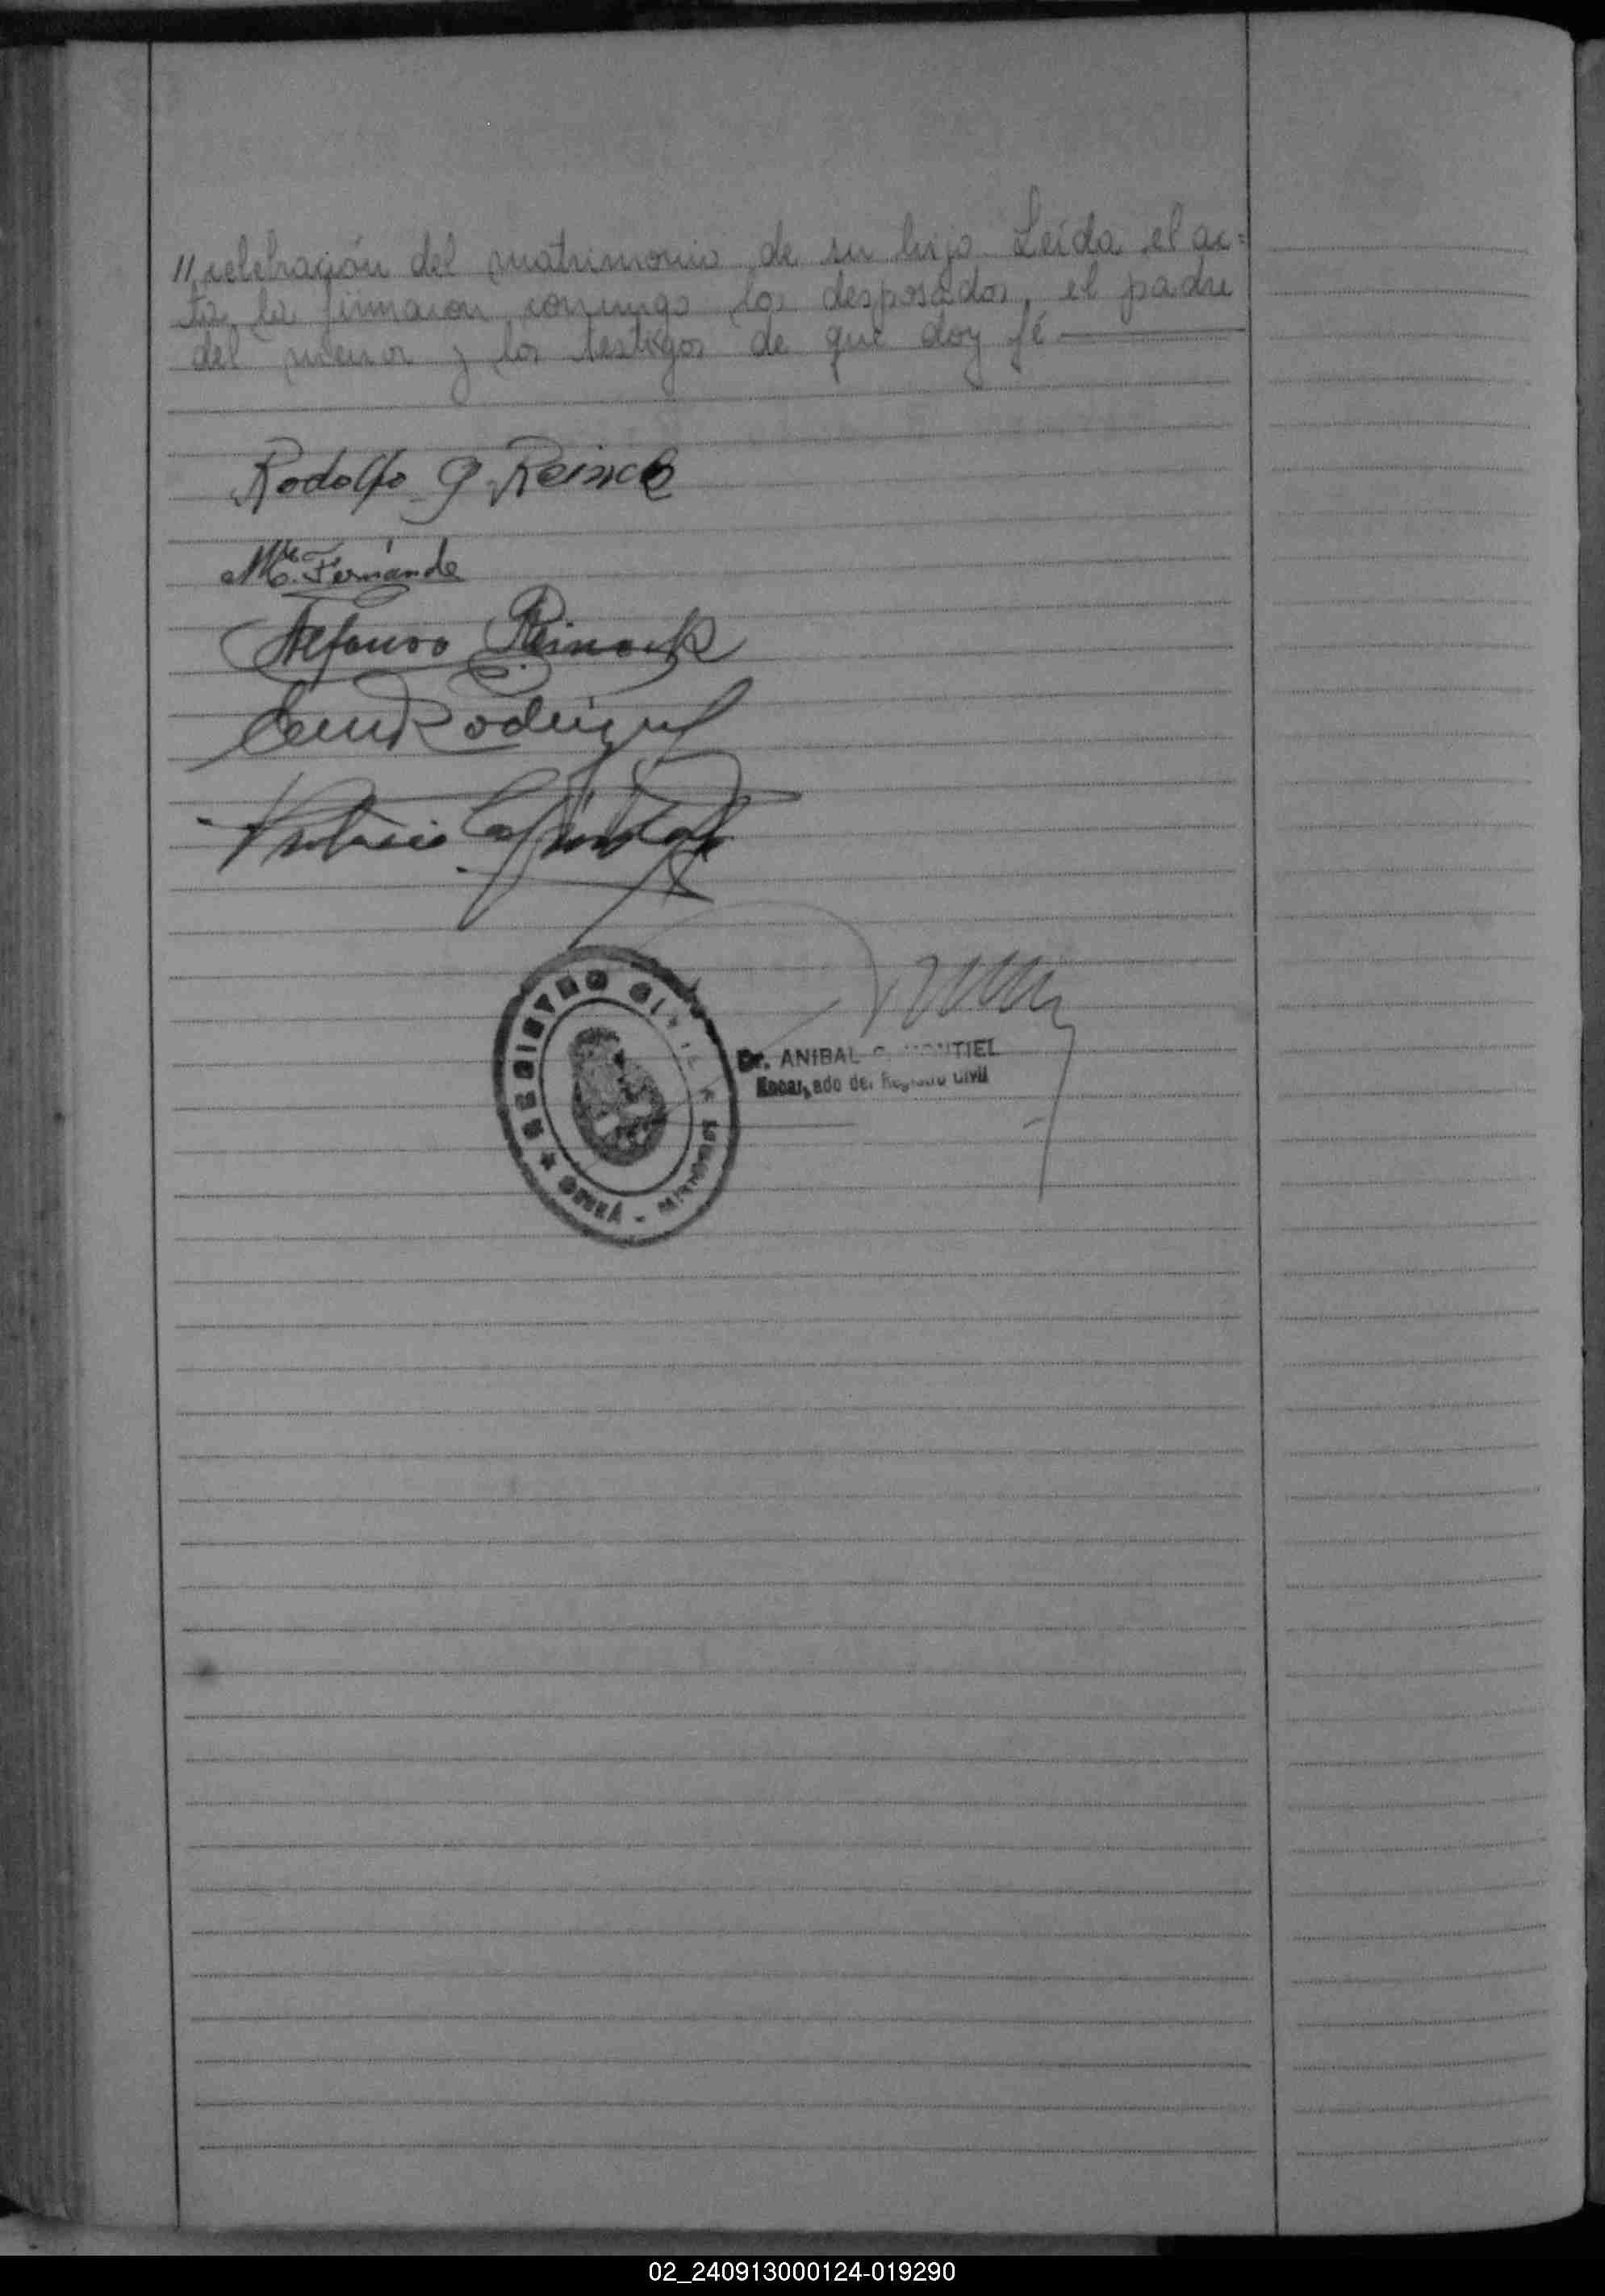 // celebración del matrimonio de su hijo. Leída el ac=
ta la firmaron conmigo los desposados, el padre
del menor y los testigos de que doy fé
Rodolfo G. Reinck
Ma. Fernánde
Alfonso Reinack
Rodriguez
REGISTRO CIVIL
OBERÁ - MISIONES
Dr. ANIBAL MONTIEL
Encargado del Registro Civil
02_240913000124-019290